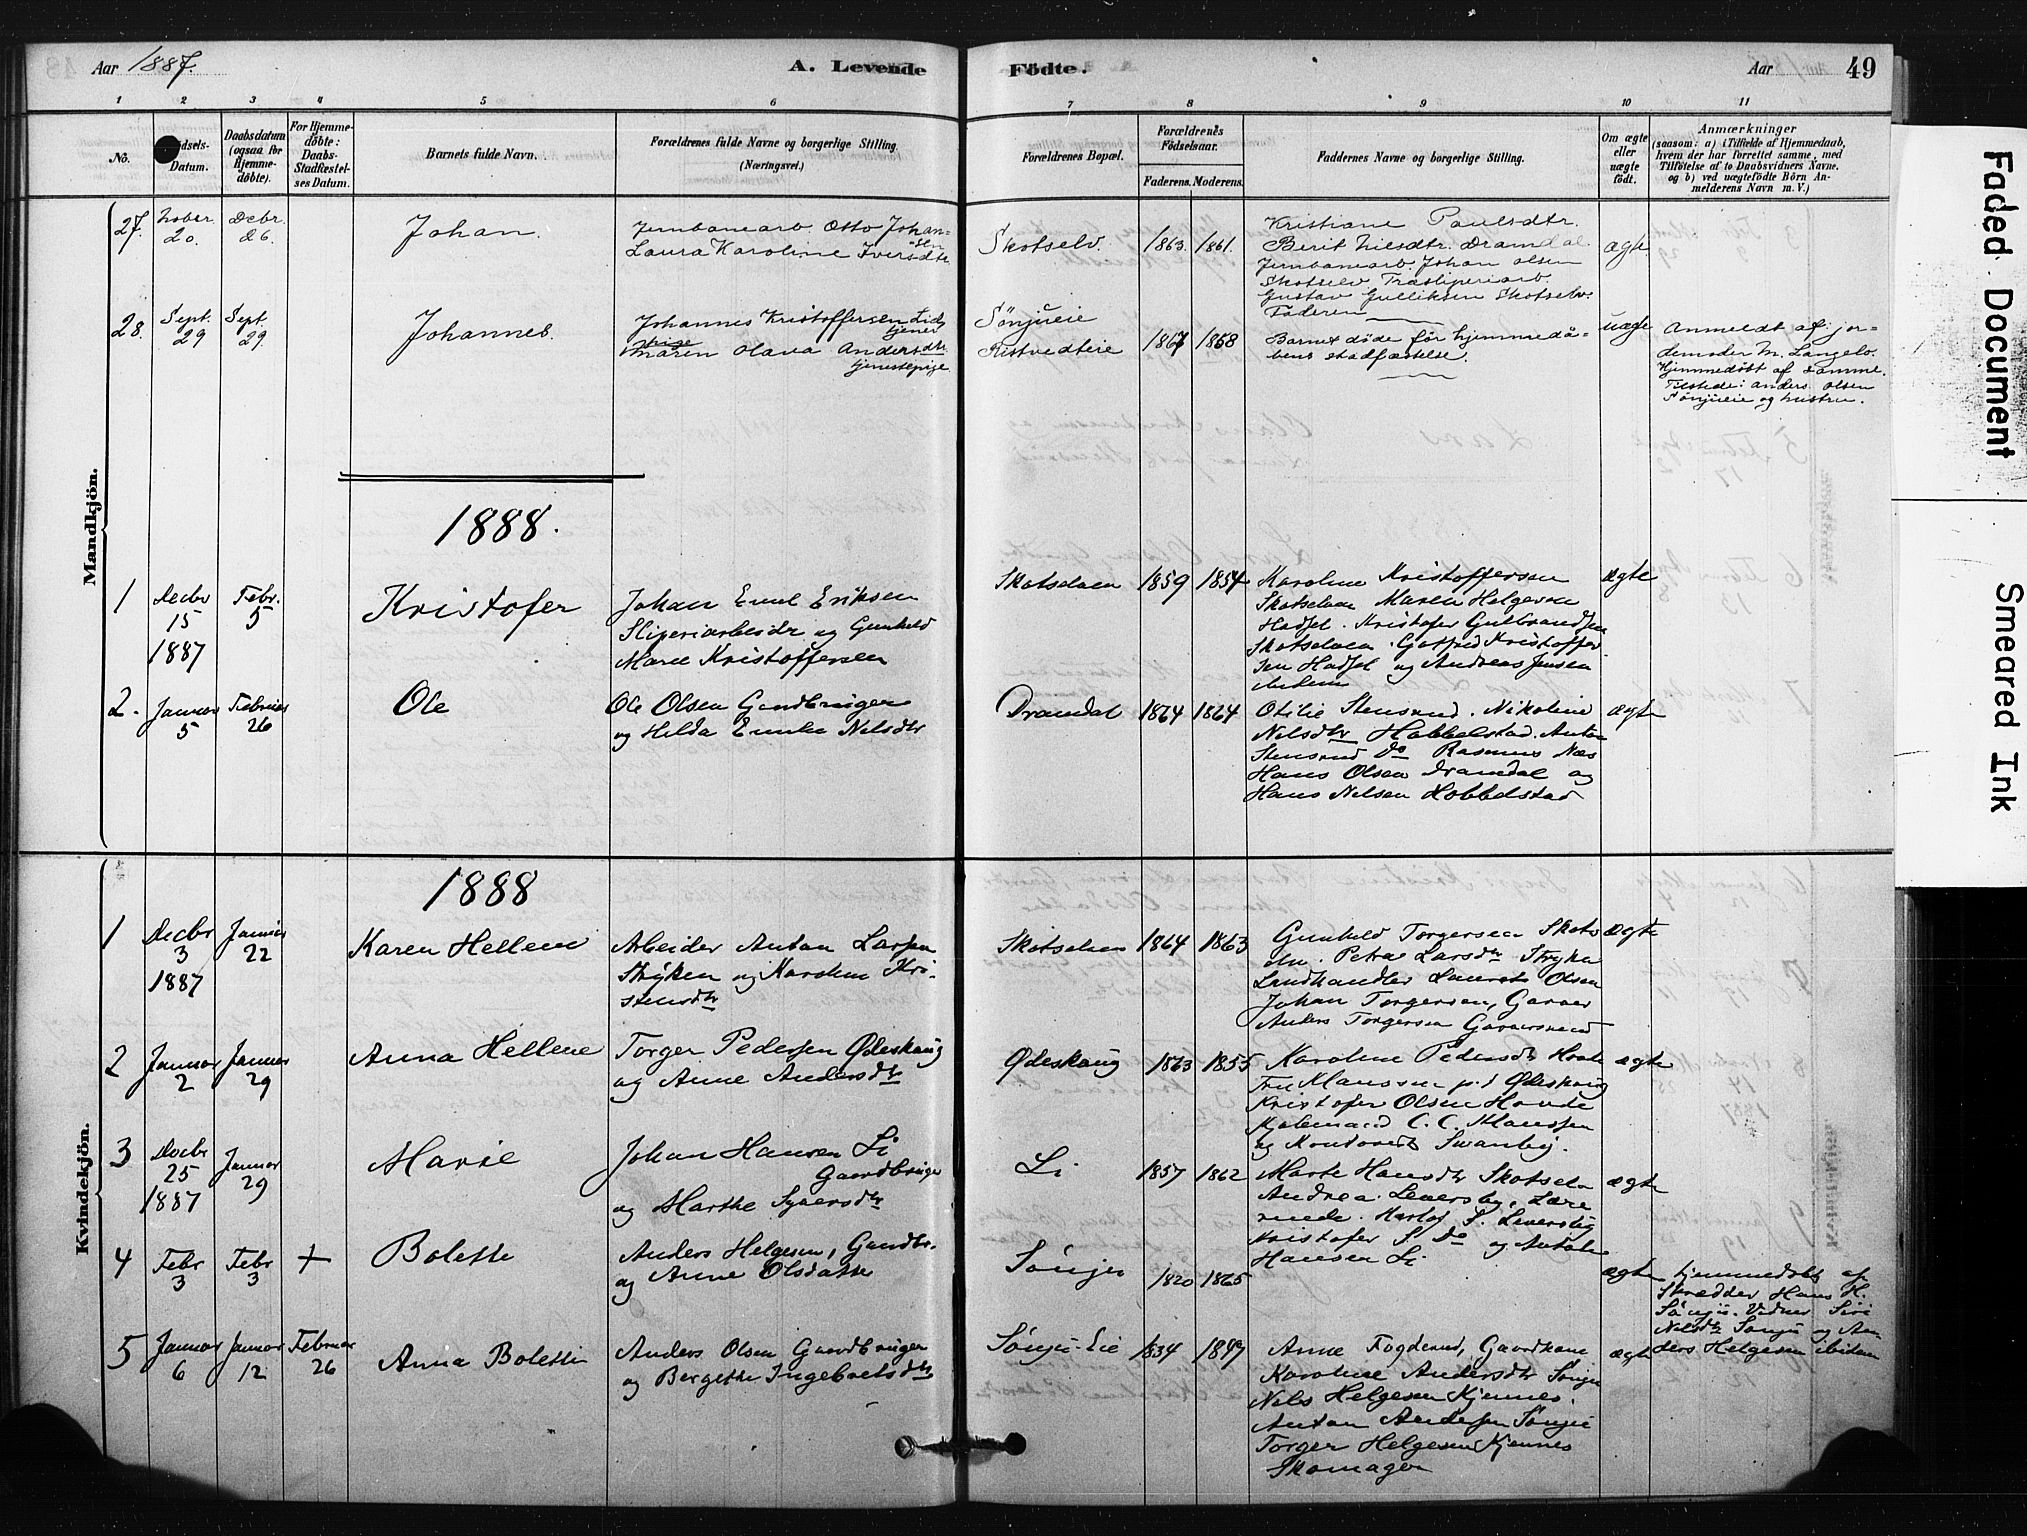 Aar 1887.
A. Levende Fødte.
Aar
49
1 2 3 4 5 6 7 8 9 10 11
No.
Datum.
Daabsdatum (ogsaa for Hjemme-døbte).
For Hjemme-døbte: Daabs-Stadfæstel-ses Datum.
Barnets fulde Navn.
Forældrenes fulde Navne og borgerlige Stilling. (Næringsvei.)
Forældrenes Bopæl.
Forældrenes Fødselsaar.
Faderens. Moderens.
Faddernes Navne og borgerlige Stilling.
Om ægte eller uægte født.
Anmærkninger
(saasom: a) i Tilfælde af Hjemmedaab,
hvem der har forrettet samme, med
Tilføielse af to Daabsvidners Navne.
og b) ved uægtefødte Børn An-
melderens Navn m. V.)
Mandkjön.
27. 20. Decbr. 26. Johan.
Jernbanearb. Otto Johan-
sen
Laura Karoline Iversdtr
Skotselv. 1863. 1861.
Kristiane Paulsdtr.
Berit Nilsdtr. Dramdal
Jernbanearb. Johan Olsen
Skotselv. Træsliperiarb.
Gustav Gulliksen Skotselv.
Faderen
ægte
28. Sept. 29 Sept. 29. Johannes.
Johannes Kristoffersen Lid,
tjener
Maren Olava Andersdtr
tjenestepige
Sönjueie
Ristvedteie 1867 1868
Barnet døde før hjemmedå-
bens stadfæstelse.
uægte
Anmeldt af jor-
demoder M. Langelv.
Hjemmedøbt af samme.
Tilstede: Anders Olsen
Sönjueie og hustru.
1888.
1 Decbr 15 1887 Febr. 5 Kristofer
Johan Emil Eriksen
Sliperiarbeider og Gunhild
Marie Kristoffersen
Skotselven 1859 1854
Karoline Kristoffersen
Skotselven Maren Helgesen
Hadsel. Kristofer Gulbrandsen
Skotselven. Gotfred Kristoffer
sen Hadsel og Andreas Jensen
ægte
2. Januar 5 Februar 26 Ole
Ole Olsen Gaardbruger
og Hilda Emilie Nilsdtr
Dramdal 1864 1864
Otilie Stensrud. Nikoline
Nilsdtr Hobbelstad. Anton
Stensrud Do Rasmus Næs
Hans Olsen Dramdal og
Hans Nilsen Hobbelstad
ægte
Kvindekjön.
1888
1 Decbr 3 1887 Januar 22 Karen Hellene
Arbeider Anton Larsen
Stryken og Karoline Kri-
stensdtr
Skotselven 1864 1863
Gunhild Torgersen Skots
elv. Petra Larsdtr Stryken
Landhandler Laurets Olsen
Johan Torgersen, Garver
Anders Torgersen Garversvend
ægte
2 Januar 2 Januar 29 Anna Hellene
Torger Pedersen Ødeskaug
og Anne Andersdtr
Ødeskaug 1863 1855
Karoline Pedersdtr
Fru Klaussen p.t Ødeskaug
Kristofer Olsen Hovde
C. C. Klaussen
og
ægte
3 Decbr 25 1887 Januar 29 Marie
Johan Hansen Li
Gaardbruger
og Marthe Syversdtr
Li 1857 1862
Marte Hansdtr Skotselv
Andrea Leversby,
S. Leversby
Kristofer S. Do og Anton
Hansen Li
ægte
4 Febr 3 Febr 3 + Bolette
Anders Helgesen, Gaardbr.
og Anne Olsdatter
Sönju 1820 1865
ægte
Hjemmedøbt af
Skrædder Hans H.
Sönju. Vidner Siri
Nilsdtr Sönju og An
ders Helgesen ibidem
5 Januar 6 Januar 12 Februar 26 Anna Bolette
Anders Olsen Gaardbruger
og Bergethe Ingebretsdtr
Sönju-Eie 1834 1847
Anne Fogderud, Gaardkone
Karoline Andersdtr Sönju
Nils Helgesen Kjennes.
Anton Andersen Sönju
Torger Helgesen Kjennes
Skomager
ægte
Faded Document
Smeared Ink